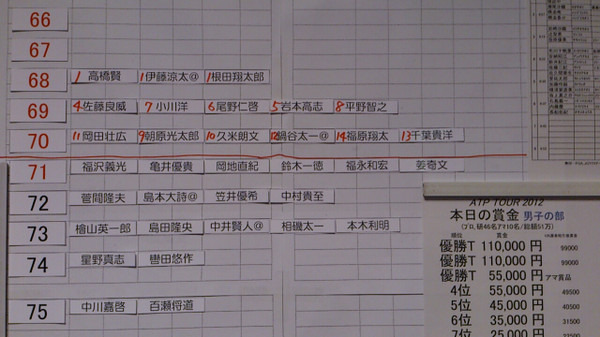 66
67
68 1 高橋賢 1 伊藤涼太@ 1 根田翔太郎
69 4 佐藤良威 7 小川洋 6 尾野仁啓 5 岩本高志 8 平野智之
70 11 岡田壮広 9 朝原光太郎 10 久米朗文 12 鍋谷太一@ 14 福原翔太 13 千葉貴洋
71 福沢義光 亀井優貴 岡地直紀 鈴木一徳 福永和宏 姜奇文
72 菅間隆夫 島本大詩@ 笠井優希 中村貴至
73 檜山英一郎 島田隆央 中井賢人@ 相磯太一 本木利明
74 星野真志 轡田悠作
75 中川嘉啓 百瀬将道
ATP TOUR 2012
本日の賞金 男子の部
(プロ,研46名アマ10名/総額51万)
順位 賞金
優勝T 110,000 円 99000
優勝T 110,000 円 99000
優勝T 55,000 円 アマ賞品
4位 55,000 円 49500
5位 45,000 円 40500
6位 35,000 円 31500
7位 25,000 円 22500